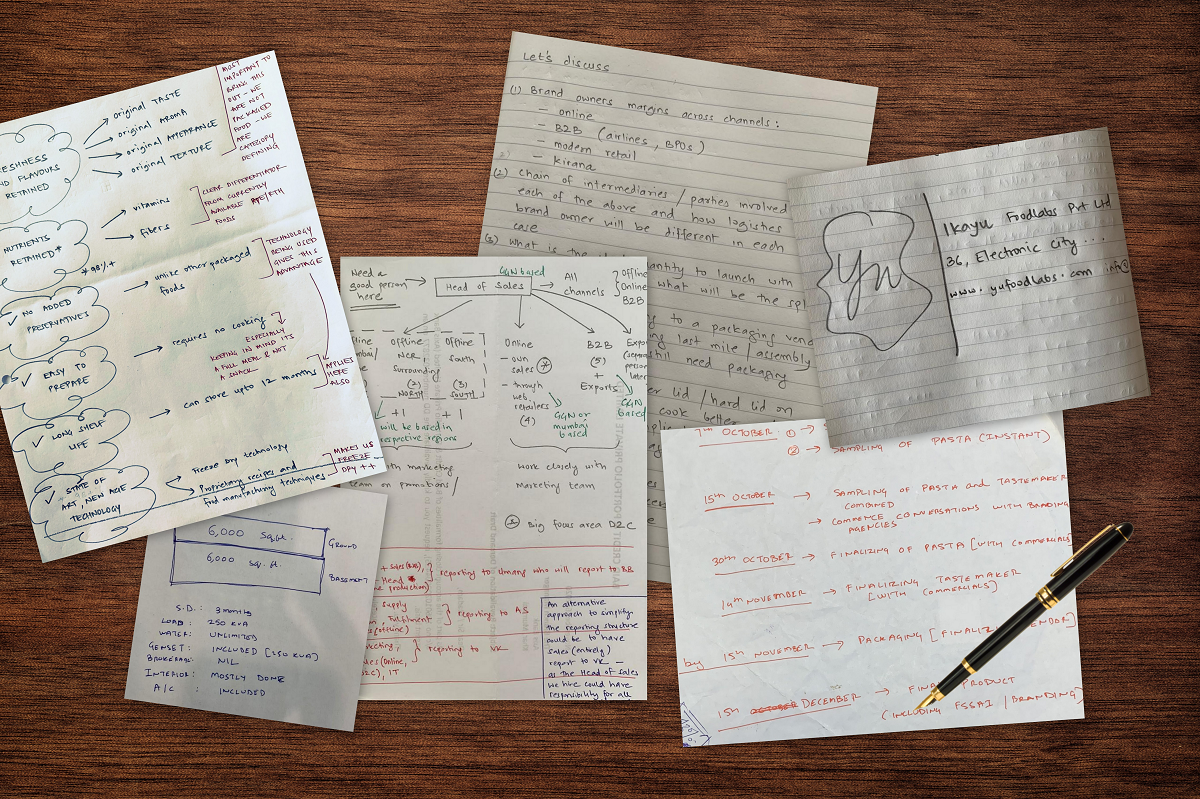 FRESHNESS
AND FLAVOURS
RETAINED
original TASTE
original AROMA
original APPEARANCE
original TEXTURE
MOST
IMPORTANT TO
BRING THIS
OUT - WE
ARE NOT
PACKAGED
FOOD - WE
ARE
CATEGORY
DEFINING
NUTRIENTS
RETAINED*
*98%+
vitamins
fibers
CLEAR DIFFERENTIATOR
FROM CURRENTLY
AVAILABLE RTE/RTH
FOODS
✓ NO ADDED
PRESERVATIVES
unlike other packaged
foods
TECHNOLOGY
BEING USED
GIVES THIS
ADVANTAGE
✓ EASY TO
PREPARE
requires no cooking
ESPECIALLY
KEEPING IN MIND ITS
A FULL MEAL & NOT
A SNACK
✓ LONG SHELF
LIFE
can store upto 12 months
APPLIES
HERE
ALSO
✓ STATE OF
ART, NEW AGE
TECHNOLOGY
Freeze dry technology
Proprietary recipes and
food manufacturing techniques
MAKES US
FREEZE
DRY ++
Let's discuss
(1) Brand owners margins across channels:
- online
- B2B (airlines, BPOs)
- modern retail
- kirana
(2) Chain of intermediaries / parties involved
each of the above and how logistics
brand owner will be different in each
case
(3) What is the
quantity to launch with
what will be the spl
to a packaging vend
last mile / assembly
still need packaging
lid / hard lid on
cook better
yu
Ikayu Foodlabs Pvt Ltd
36, Electronic city ...
www.yufoodlabs.com info@
Need a
good person
here
GGN based
Head of Sales
All
channels
Offline
Online
B2B
Offline
NCR,
surrounding
(2)
NORTH
Offline
South
(3)
SOUTH
+1 +1
will be based in
respective regions
with marketing
team on promotions/
Online
- own
sales *
- through
web
retailers
(4)
B2B
(5)
+
Exports
GGN or
mumbai
based
Export
(separate
person
later
GGN
based
work closely with
marketing team
* Big focus area D2C
+ Sales (B2B),
Head
production)
reporting to Umang who will report to BB
Supply
Fulfilment
(offline)
reporting to AS
(Online,
D2C), IT
reporting to VK
An alternative
approach to simplify
the reporting structure
could be to have
sales (entirely)
report to VK -
as the Head of Sales
we hire could have
responsibility for all
6,000 Sq.ft.
GROUND
6,000 Sq.ft.
BASEMENT
S.D.: 3 months
LOAD: 250 KVA
WATER: UNLIMITED
GENSET: INCLUDED [250 KVA]
BROKERAGE: NIL
INTERIOR: MOSTLY DONE
A/C : INCLUDED
7th OCTOBER ① →
② → SAMPLING OF PASTA (INSTANT)
15th OCTOBER → SAMPLING OF PASTA AND TASTEMAKER
COMBINED
→ COMMENCE CONVERSATIONS WITH BRANDING
AGENCIES
30th OCTOBER → FINALIZING OF PASTA [WITH COMMERCIALS]
14th NOVEMBER → FINALIZING TASTEMAKER
[WITH COMMERCIALS]
by 15th NOVEMBER → PACKAGING [FINALIZING VENDOR]
15th OCTOBER DECEMBER → FINAL PRODUCT
(INCLUDING FSSAI / BRANDING)